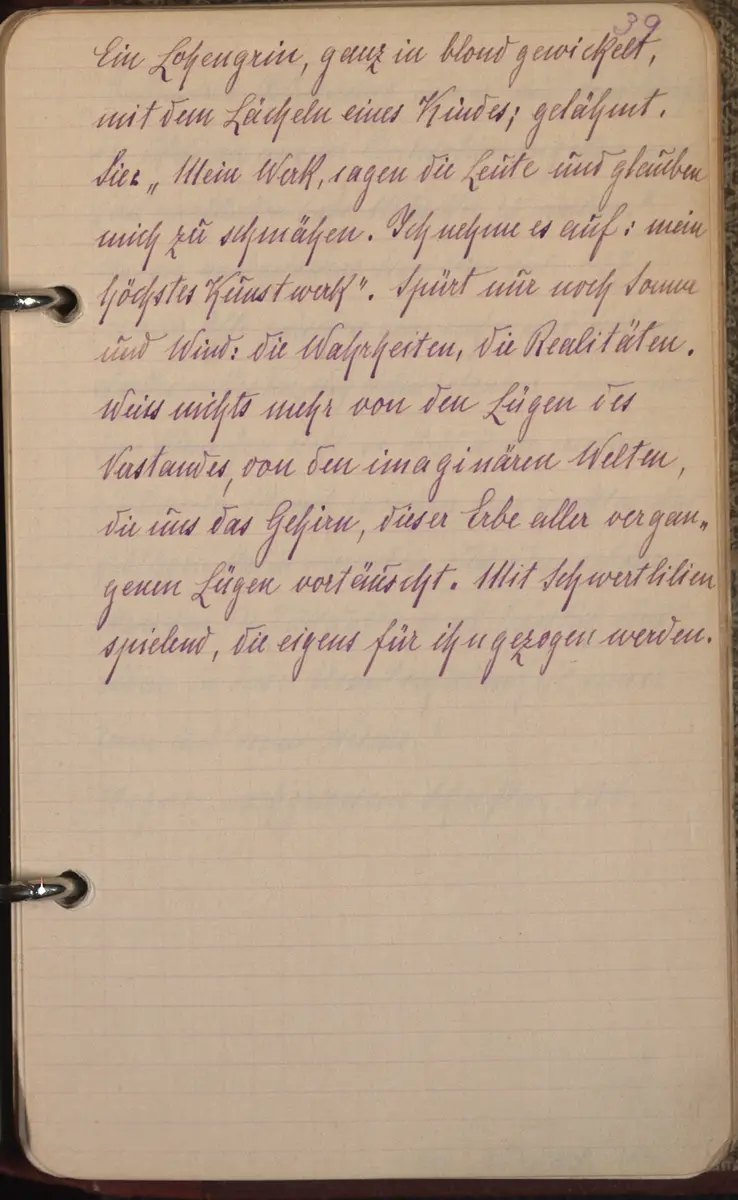 39
Ein Lohengrin, ganz in blond gewickelt,
mit dem Lächeln eines Kindes; gelähmt.
Sie: „Mein Werk, sagen die Leute und glauben
mich zu schmähen. Ich nehme es auf: mein
höchstes Kunstwerk". Spürt nur noch Sonne
und Wind: die Wahrheiten, die Realitäten.
Weiss nichts mehr von den Lügen des
Verstandes, von den imaginären Welten,
die uns das Gehirn, dieser Erbe aller vergan„
genen Lügen vortäuscht. Mit Schwertlilien
spielend, die eigens für ihn gezogen werden.